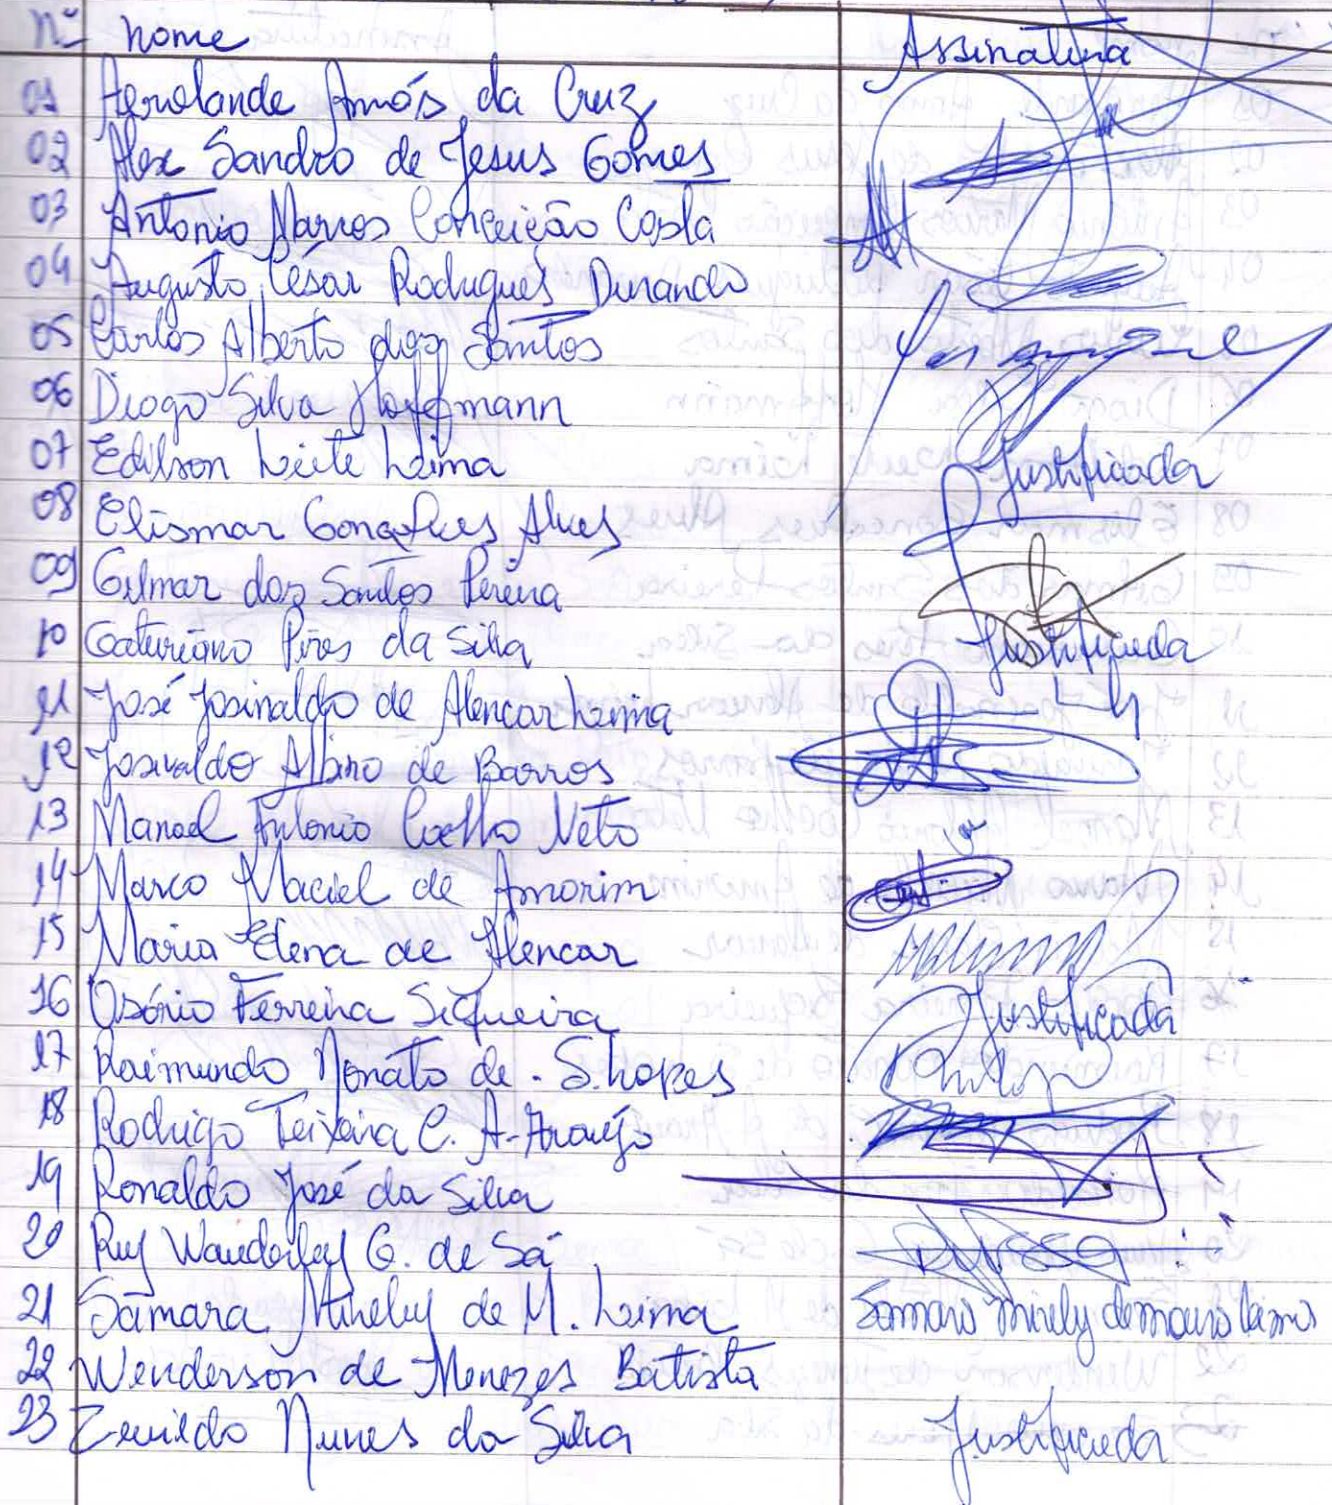 Nº nome Assinatura
01 Aerolande Amós da Cruz
02 Alex Sandro de Jesus Gomes
03 Antonio Marcos Conceição Costa
04 Augusto César Rodrigues Durando
05 Carlos Alberto dos Santos
06 Diogo Silva Hoffmann
07 Edilson Leite Lima Justificada
08 Elismar Gonçalves Alves
09 Gilmar dos Santos Pereira
10 Gaturiano Pires da Silva Justificada
11 José Josinaldo de Alencar Lima
12 Josivaldo Albino de Barros
13 Manoel Antonio Coelho Neto
14 Marco Maciel de Amorim
15 Maria Elena de Alencar
16 Osório Ferreira Siqueira Justificada
17 Raimundo Nonato de S. Lopes
18 Rodrigo Teixeira C. A. Araújo
19 Ronaldo José da Silva
20 Ruy Wanderley G. de Sá
21 Sâmara Mirely de M. Lima Samara Mirely de moura Lima
22 Wenderson de Menezes Batista
23 Zenildo Nunes da Silva Justificada